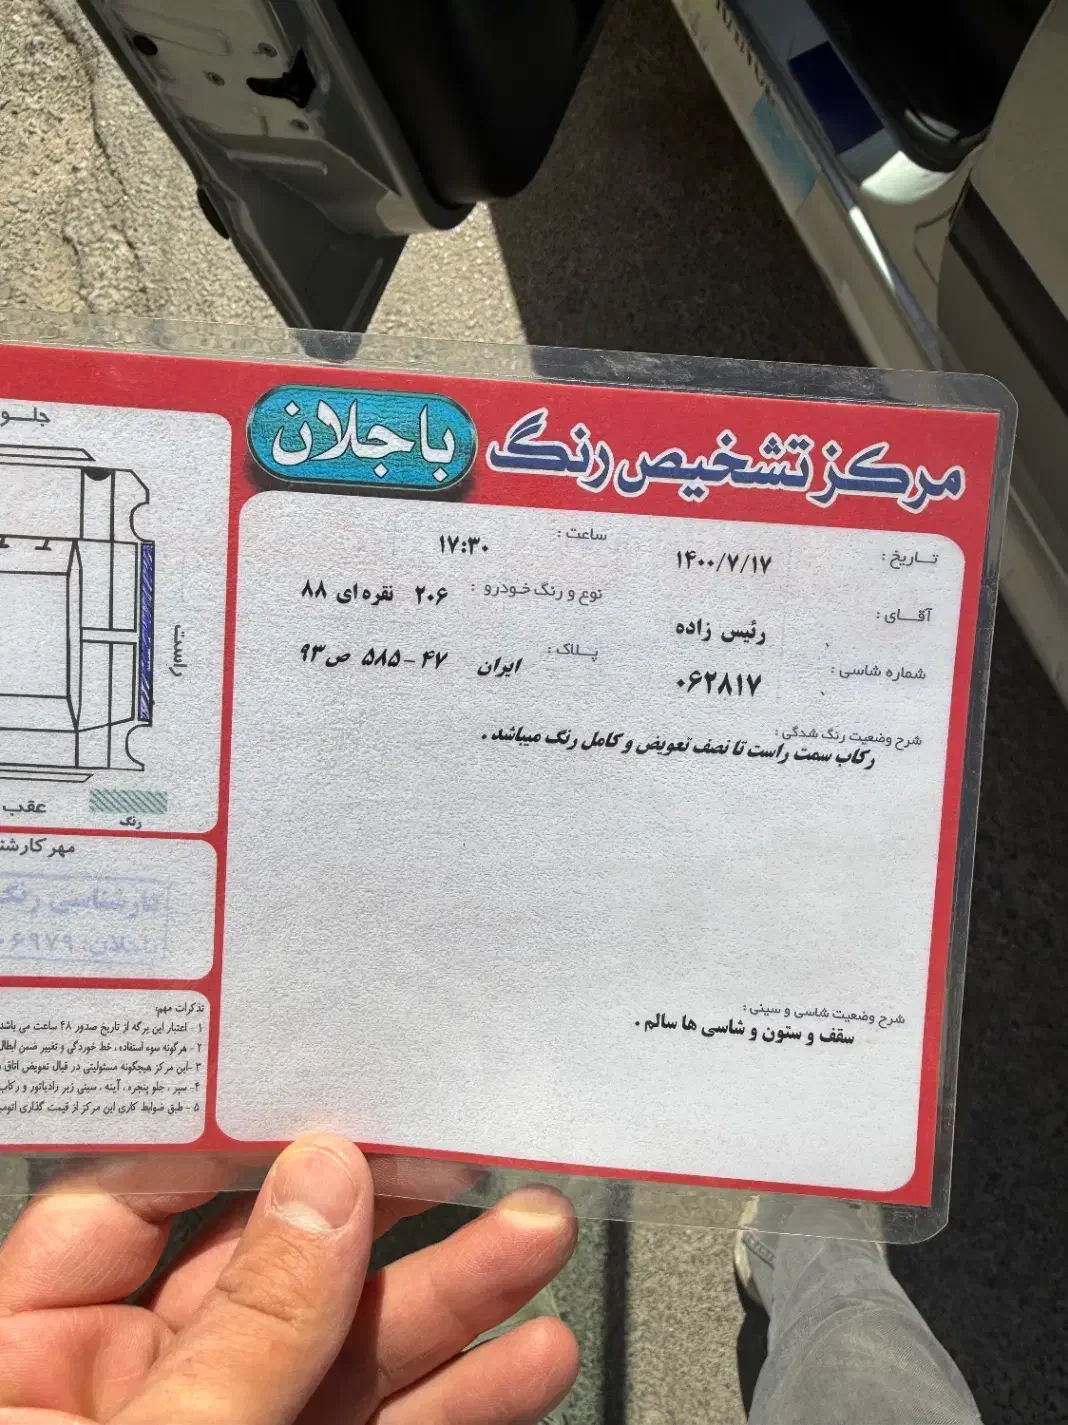 مرکز تشخیص رنگ باجلان
تاریخ: ۱۴۰۰/۷/۱۷
ساعت: ۱۷:۳۰
آقای: رئیس زاده
نوع و رنگ خودرو: ۲۰۶ نقره ای ۸۸
شماره شاسی: ۰۶۲۸۱۷
پلاک: ایران ۴۷ - ۵۸۵ ص ۹۳
شرح وضعیت رنگ شدگی:
رکاب سمت راست تا نصف تعویض و کامل رنگ میباشد.
شرح وضعیت شاسی و سینی:
سقف و ستون و شاسی ها سالم.
جلو
راست
عقب
رنگ
مهر کارشنا
کارشناسی رنگ
باجلان: ۶۹۷۹
تذکرات مهم:
۱- اعتبار این برگه از تاریخ صدور ۴۸ ساعت می باشد
۲- هرگونه سوء استفاده، خط خوردگی و تغییر ضمن ابطال
۳- این مرکز هیچگونه مسئولیتی در قبال تعویض اتاق
۴- سپر، جلو پنجره، آینه، سینی زیر رادیاتور و رکاب
۵- طبق ضوابط کاری این مرکز از قیمت گذاری اتومب